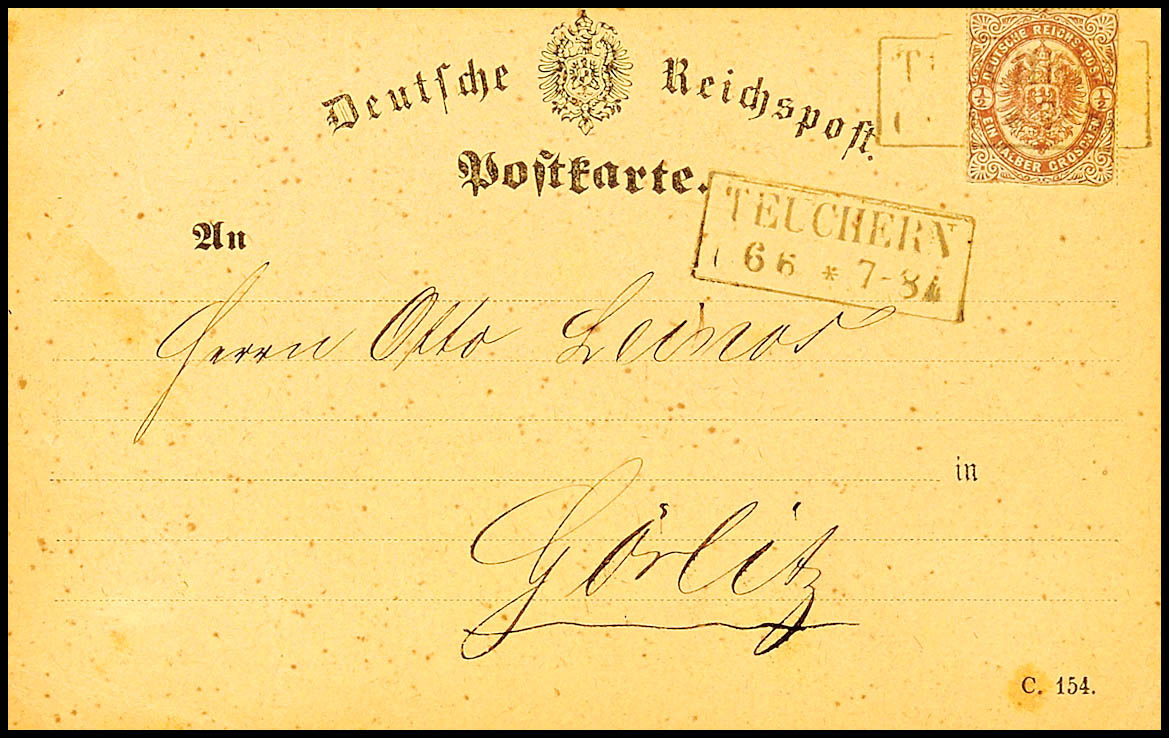 Deutsche Reichspost.
Postkarte.
DEUTSCHE REICHS-POST
½ ½
EIN HALBER GROSCHEN
TEUCHERN
6 6 * 7-8
An
Herrn Otto
in
Görlitz
C. 154.